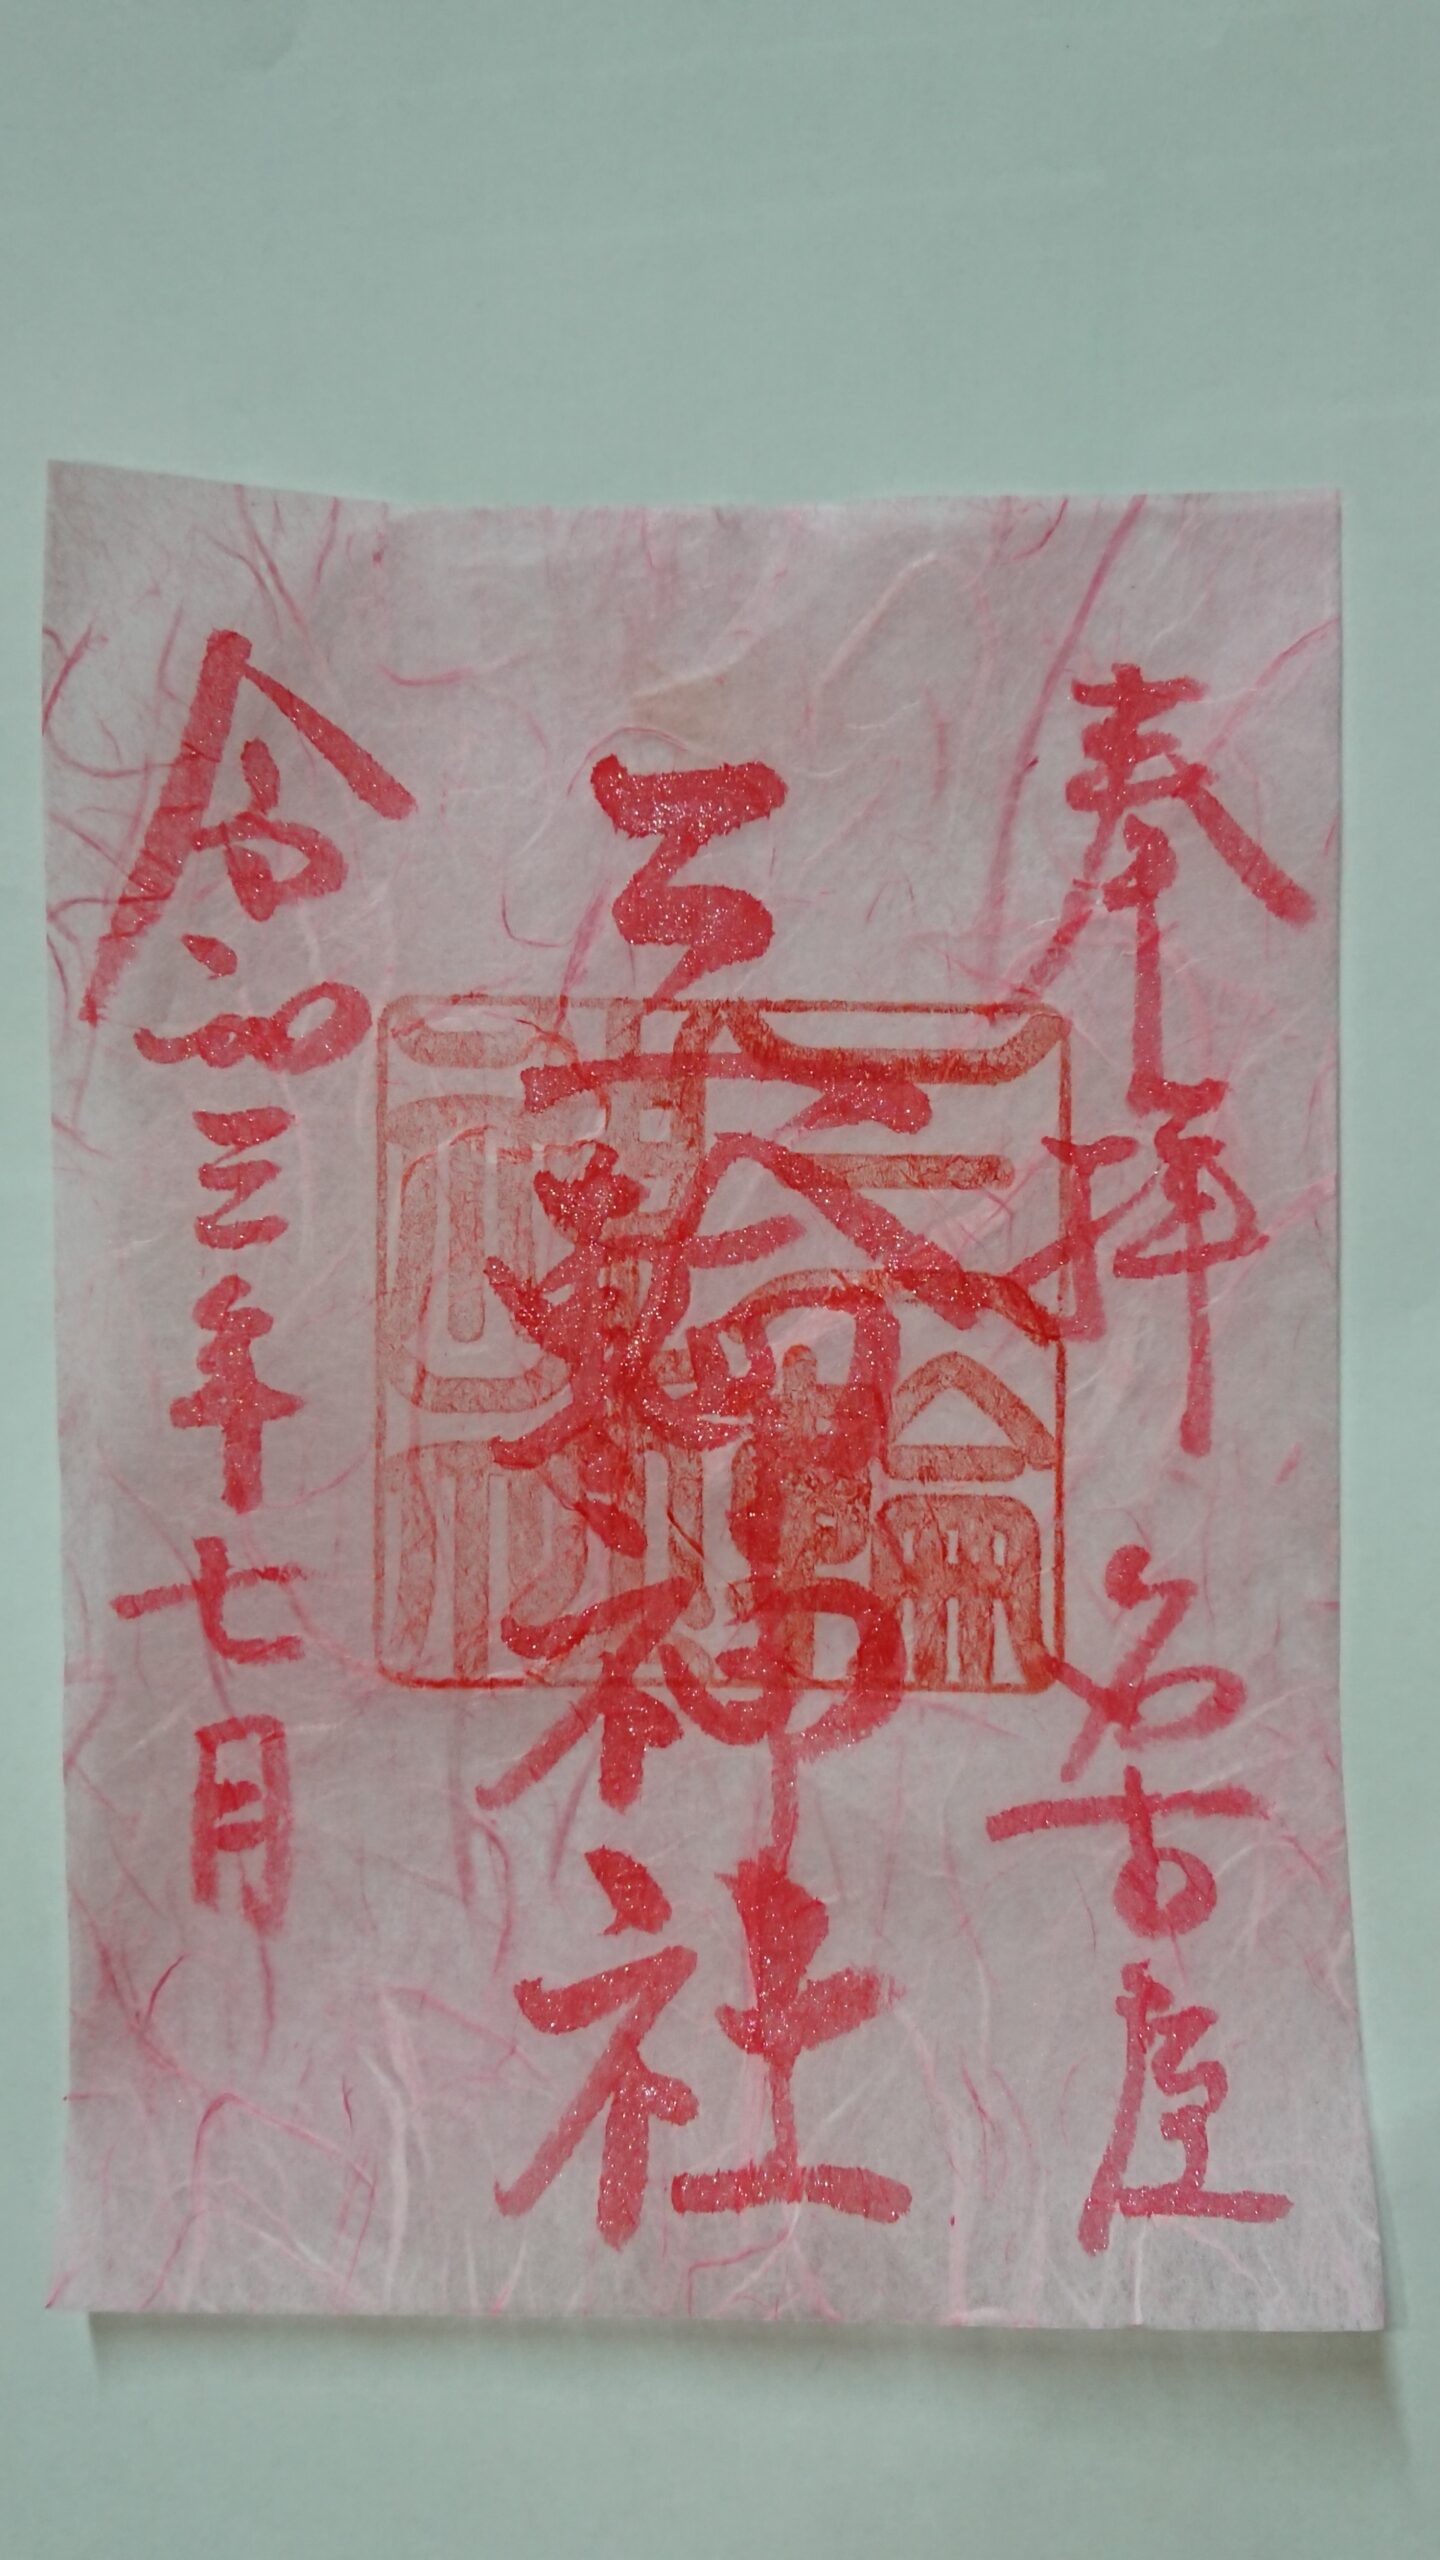 奉拝 名古屋
三輪神社
令和三年七月
三輪神社